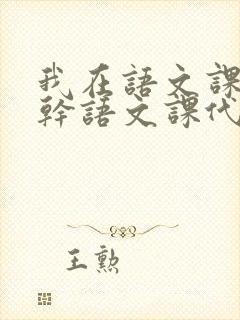 我在語文課
幹語文課代
王勲